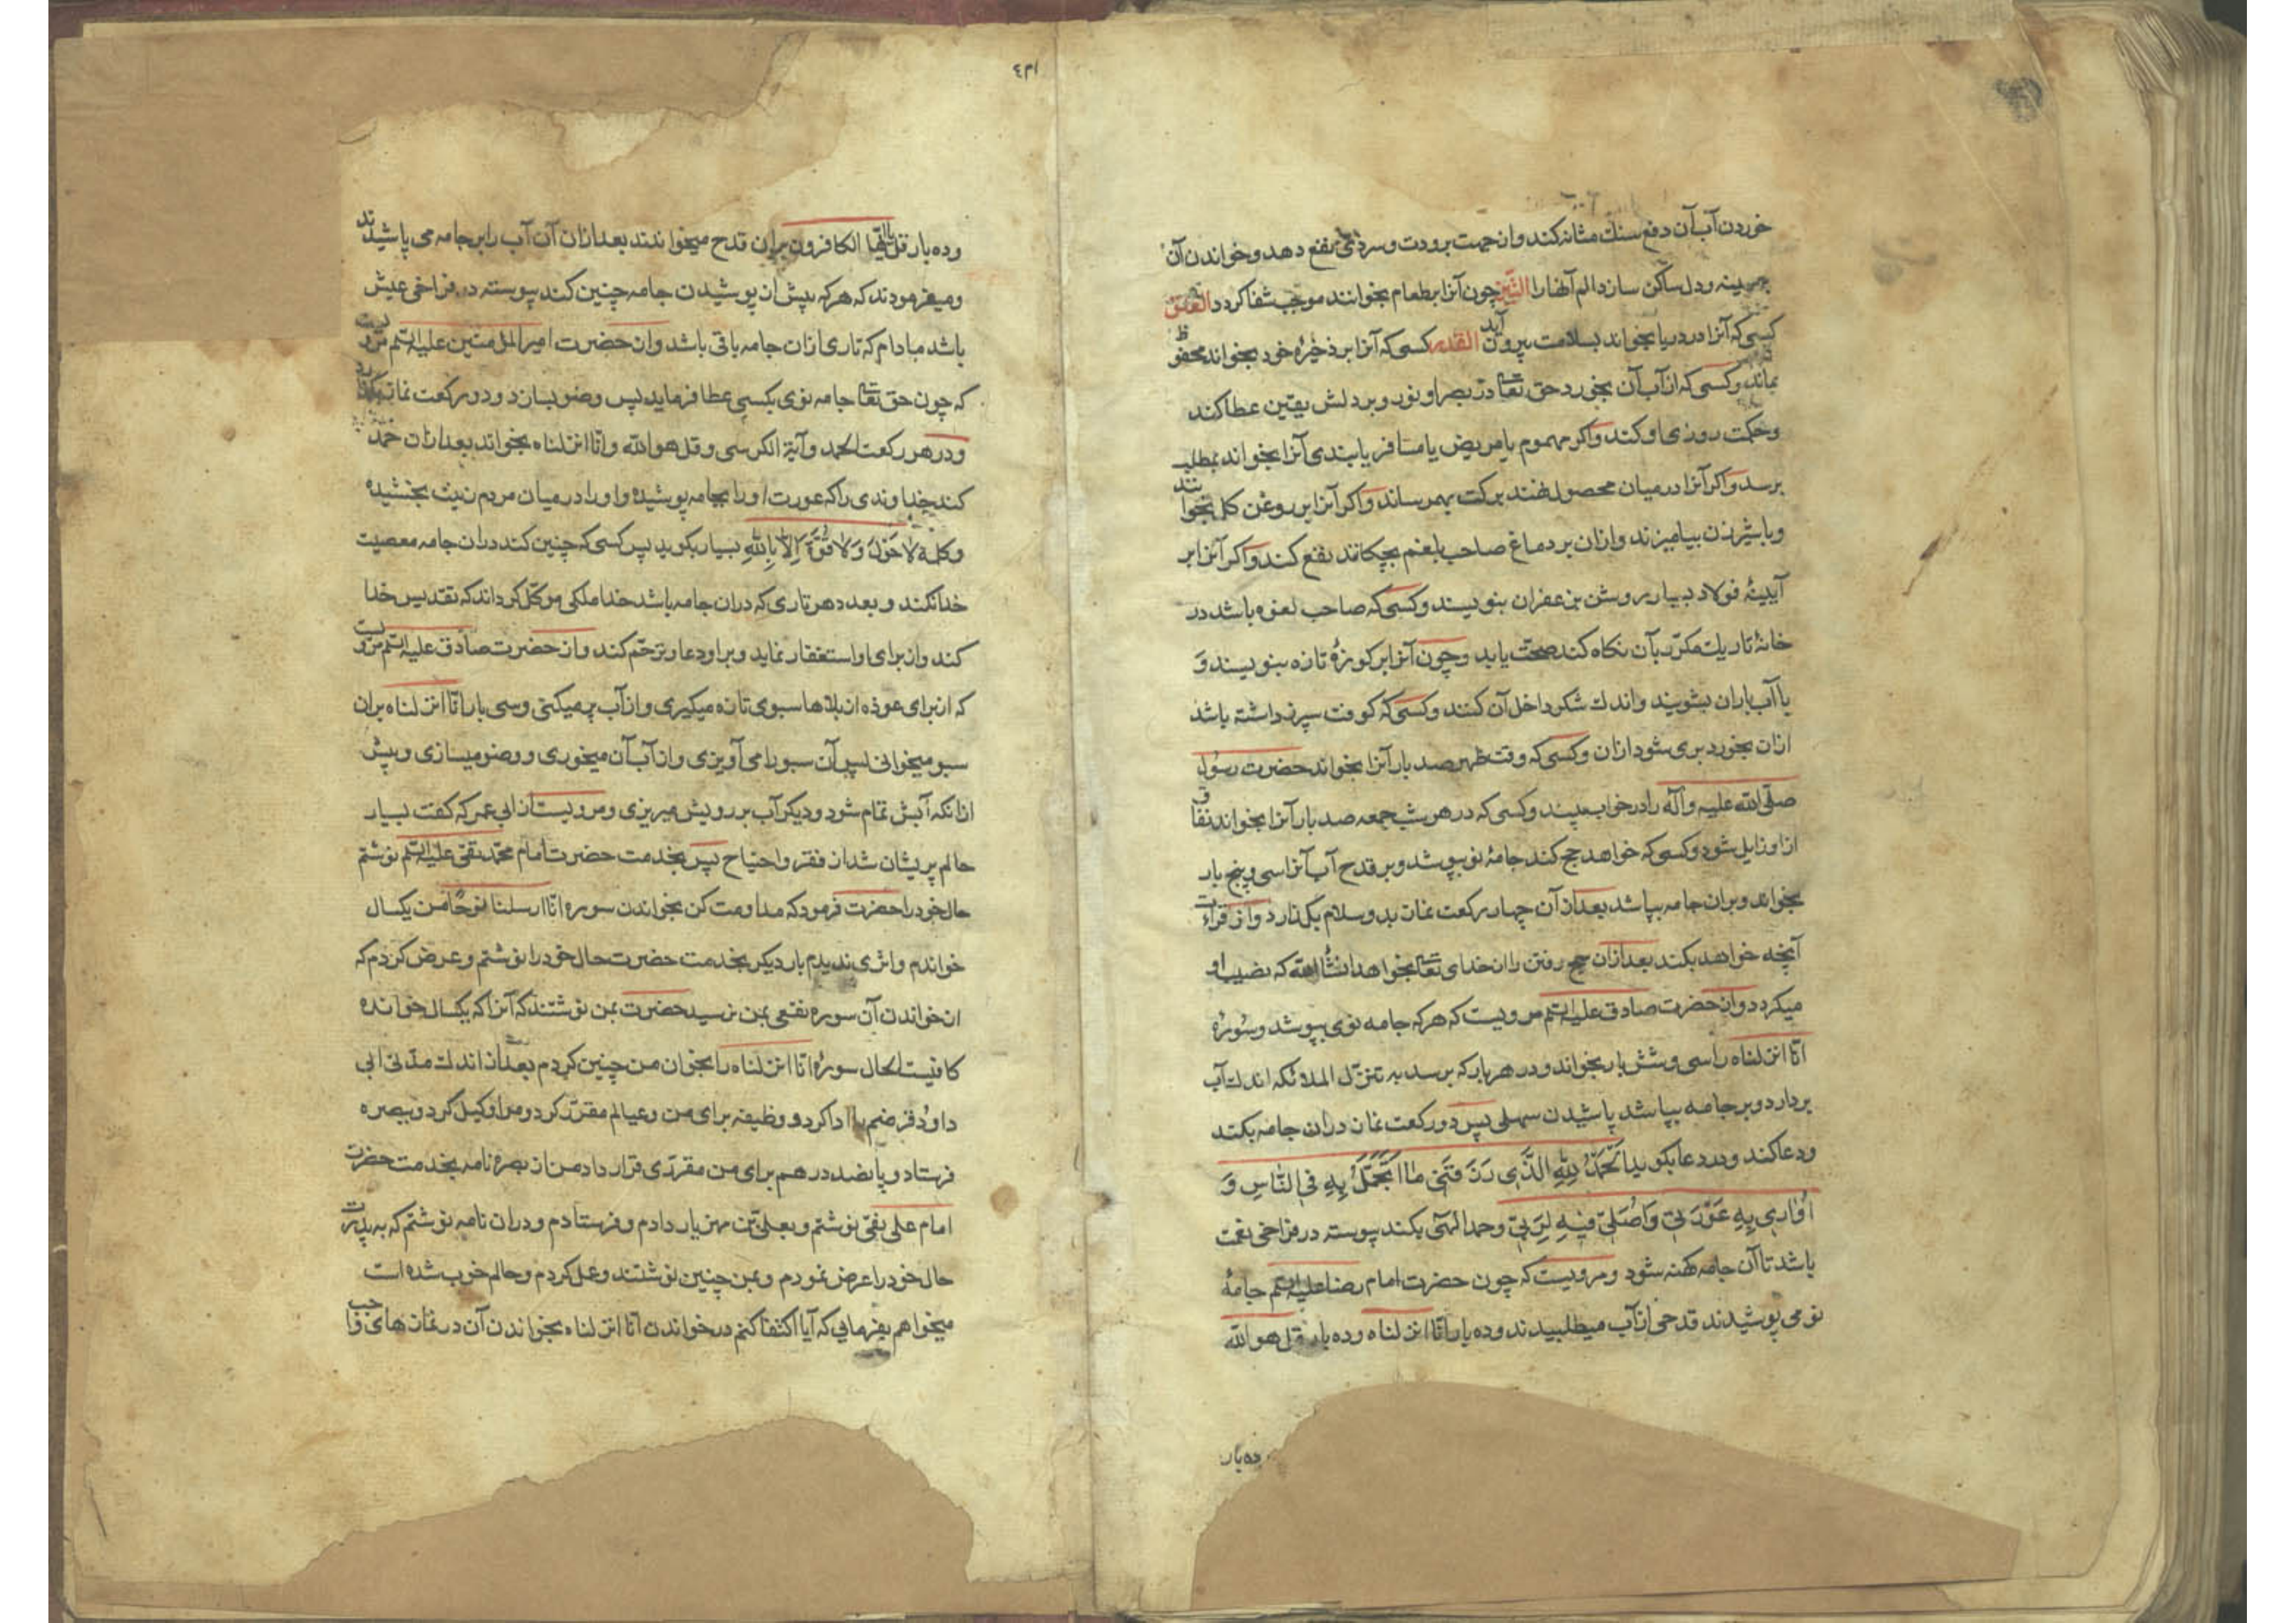 خوردن آب آن دفع سنك مثانه كند و از جهت برودت و سردی نفع دهد و خواندن آن
بر سینه و دل ساكن سازد الم آنها را التین چون آنرا بطعام بخوانند موجب شفا كردد العلق
كسی كه آنرا در دریا بخواند بسلامت بیرون آید القدر كسی كه آنرا بر ذخیرهٔ خود بخواند محفوظ
بماند و كسی كه از آب آن بخورد حق تعا در بصر او نور و بر دلش یقین عطا كند
و حكمت روزی او كند و اكر مهموم یا مریض یا مسافر یا بندی آنرا بخواند بمطلب
برسد و اكر آنرا در میان محصول نهند بركت بهمرساند و اكر آنرا بر روغن كل بخوانند
و با شیر زن بیامیزند و ازان بر دماغ صاحب بلغم بچكانند نفع كند و اكر آنرا بر
آیینهٔ فولاد بسیار روشن بزعفران بنویسند و كسی كه صاحب لعوه باشد در
خانهٔ تاریك مكرر بآن نكاه كند صحت یابد و چون آنرا بر كوزهٔ تازه بنویسند و
با آب باران بشویند و اندك شكر داخل آن كنند و كسی كه كوفت سپرز داشته باشد
ازان بخورد بری شود ازان و كسی كه وقت ظهر صد بار آنرا بخواند حضرت رسول
صلی الله علیه و آله را در خواب بیند و كسی كه در هر شب جمعه صد بار آنرا بخواند نفاق
از او زایل شود و كسی كه خواهد حج كند جامهٔ نو بپوشد و بر قدح آب آنرا سی و پنج بار
بخواند و بران جامه بپاشد بعد از آن چهار ركعت نماز بدو سلام بكذارد و از قرأت
آنچه خواهد بكند بعد ازان حج رفتن را از خدای تعا بخواهد انشاء الله كه نصیب او
میكردد و از حضرت صادق علیه السلم مرویست كه هر كه جامه نوی بپوشد و سورهٔ
انا انزلناه را سی و شش بار بخواند و در هر بار كه برسد به تنزل الملائكه اندك آب
بردارد و بر جامه بپاشد پاشیدن سهلی پس دو ركعت نماز دران جامه بكند
و دعا كند و در دعا بكوید اَلحَمدُ لِلّهِ الَّذی رَزَقَنی ما اَتَجَمَّلُ بِهِ فِی النّاسِ وَ
اُواری بِهِ عَورَتی وَاُصَلّی فیهِ لِرَبّی و حمد الهی بكند پیوسته در فراخی نعمت
باشد تا آن جامه كهنه شود و مرویست كه چون حضرت امام رضا علیه السلم جامهٔ
نو می پوشیدند قدحی از آب میطلبیدند و ده بار انا انزلناه و ده بار قل هو الله
ده بار
و ده بار قل یا ایها الكافرون بران قدح میخواندند بعد ازان آن آب را بر جامه می پاشیدند
و میفرمودند كه هر كه پیش از پوشیدن جامه چنین كند پیوسته در فراخی عیش
باشد مادام كه تاری ازان جامه باقی باشد و از حضرت امیرالمؤمنین علیه السلم مرویست
كه چون حق تعا جامه نوی بكسی عطا فرماید پس وضو بسازد و دو ركعت نماز بگذارد
و در هر ركعت الحمد و آیة الكرسی و قل هو الله و انا انزلناه بخواند بعد ازان حمد
كند خداوندی را كه عورت او را بجامه پوشیده و او را در میان مردم زینت بخشیده
و كلمهٔ لا حَولَ وَلا قُوَّةَ اِلّا بِاللهِ بسیار بكوید پس كسی كه چنین كند دران جامه معصیت
خدا نكند و بعدد هر تاری كه دران جامه باشد خدا ملكی موكل كرداند كه تقدیس خدا
كند و از برای او استغفار نماید و بر او دعا و ترحم كند و از حضرت صادق علیه السلم مرویست
كه از برای عوذه از بلاها سبوی تازه میكیری و از آب پر میكنی و سی بار انا انزلناه بران
سبو میخوانی پس آن سبو را می آویزی و از آب آن میخوری و وضو میسازی و پیش
از انكه آبش تمام شود و دیكر آب بر رویش میریزی و مرویست از ابی عمر كه كفت بسیار
حالم پریشان شد از فقر و احتیاج پس بخدمت حضرت امام محمد تقی علیه السلم نوشتم
حال خود را حضرت فرمود كه مداومت كن بخواندن سوره انا ارسلنا نوحا من یكسال
خواندم و اثری ندیدم بار دیكر بخدمت حضرت حال خود را نوشتم و عرض كردم كه
از خواندن آن سوره نفعی بمن نرسید حضرت بمن نوشتند كه آنرا كه یكسال خوانده
كافیست الحال سورهٔ انا انزلناه را بخوان من چنین كردم بعد از اندك مدتی ابی
داود قرضم را ادا كرد و وظیفه برای من و عیالم مقرر كرد و مرا وكیل كرد و ببصره
فرستاد و پانصد درهم برای من مقرری قرار داد من از بصره نامه بخدمت حضرت
امام علی نقی نوشتم و بعلی بن مهزیار دادم و فرستادم و دران نامه نوشتم كه به پدرت
حال خود را عرض نمودم و بمن چنین نوشتند و عمل كردم و حالم خوب شده است
میخواهم بفرمایی كه آیا اكتفا كنم در خواندن انا انزلناه بخواندن آن در نماز های واجب